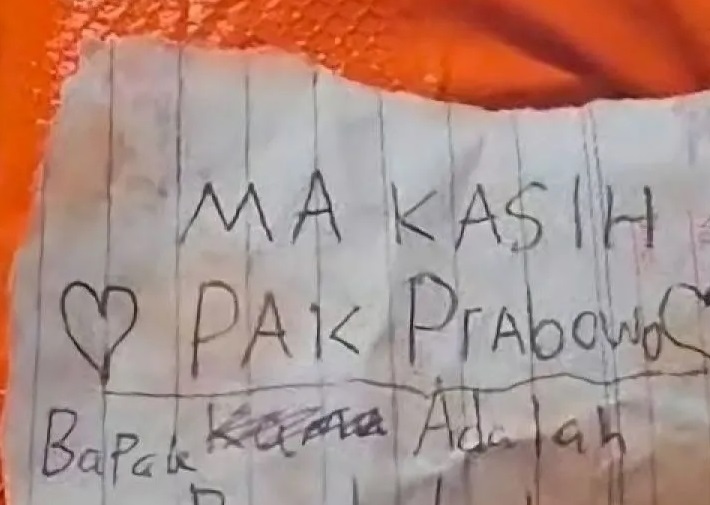 MAKASIH
♡ PAK PrAbowo ♡
BaPak Adalah